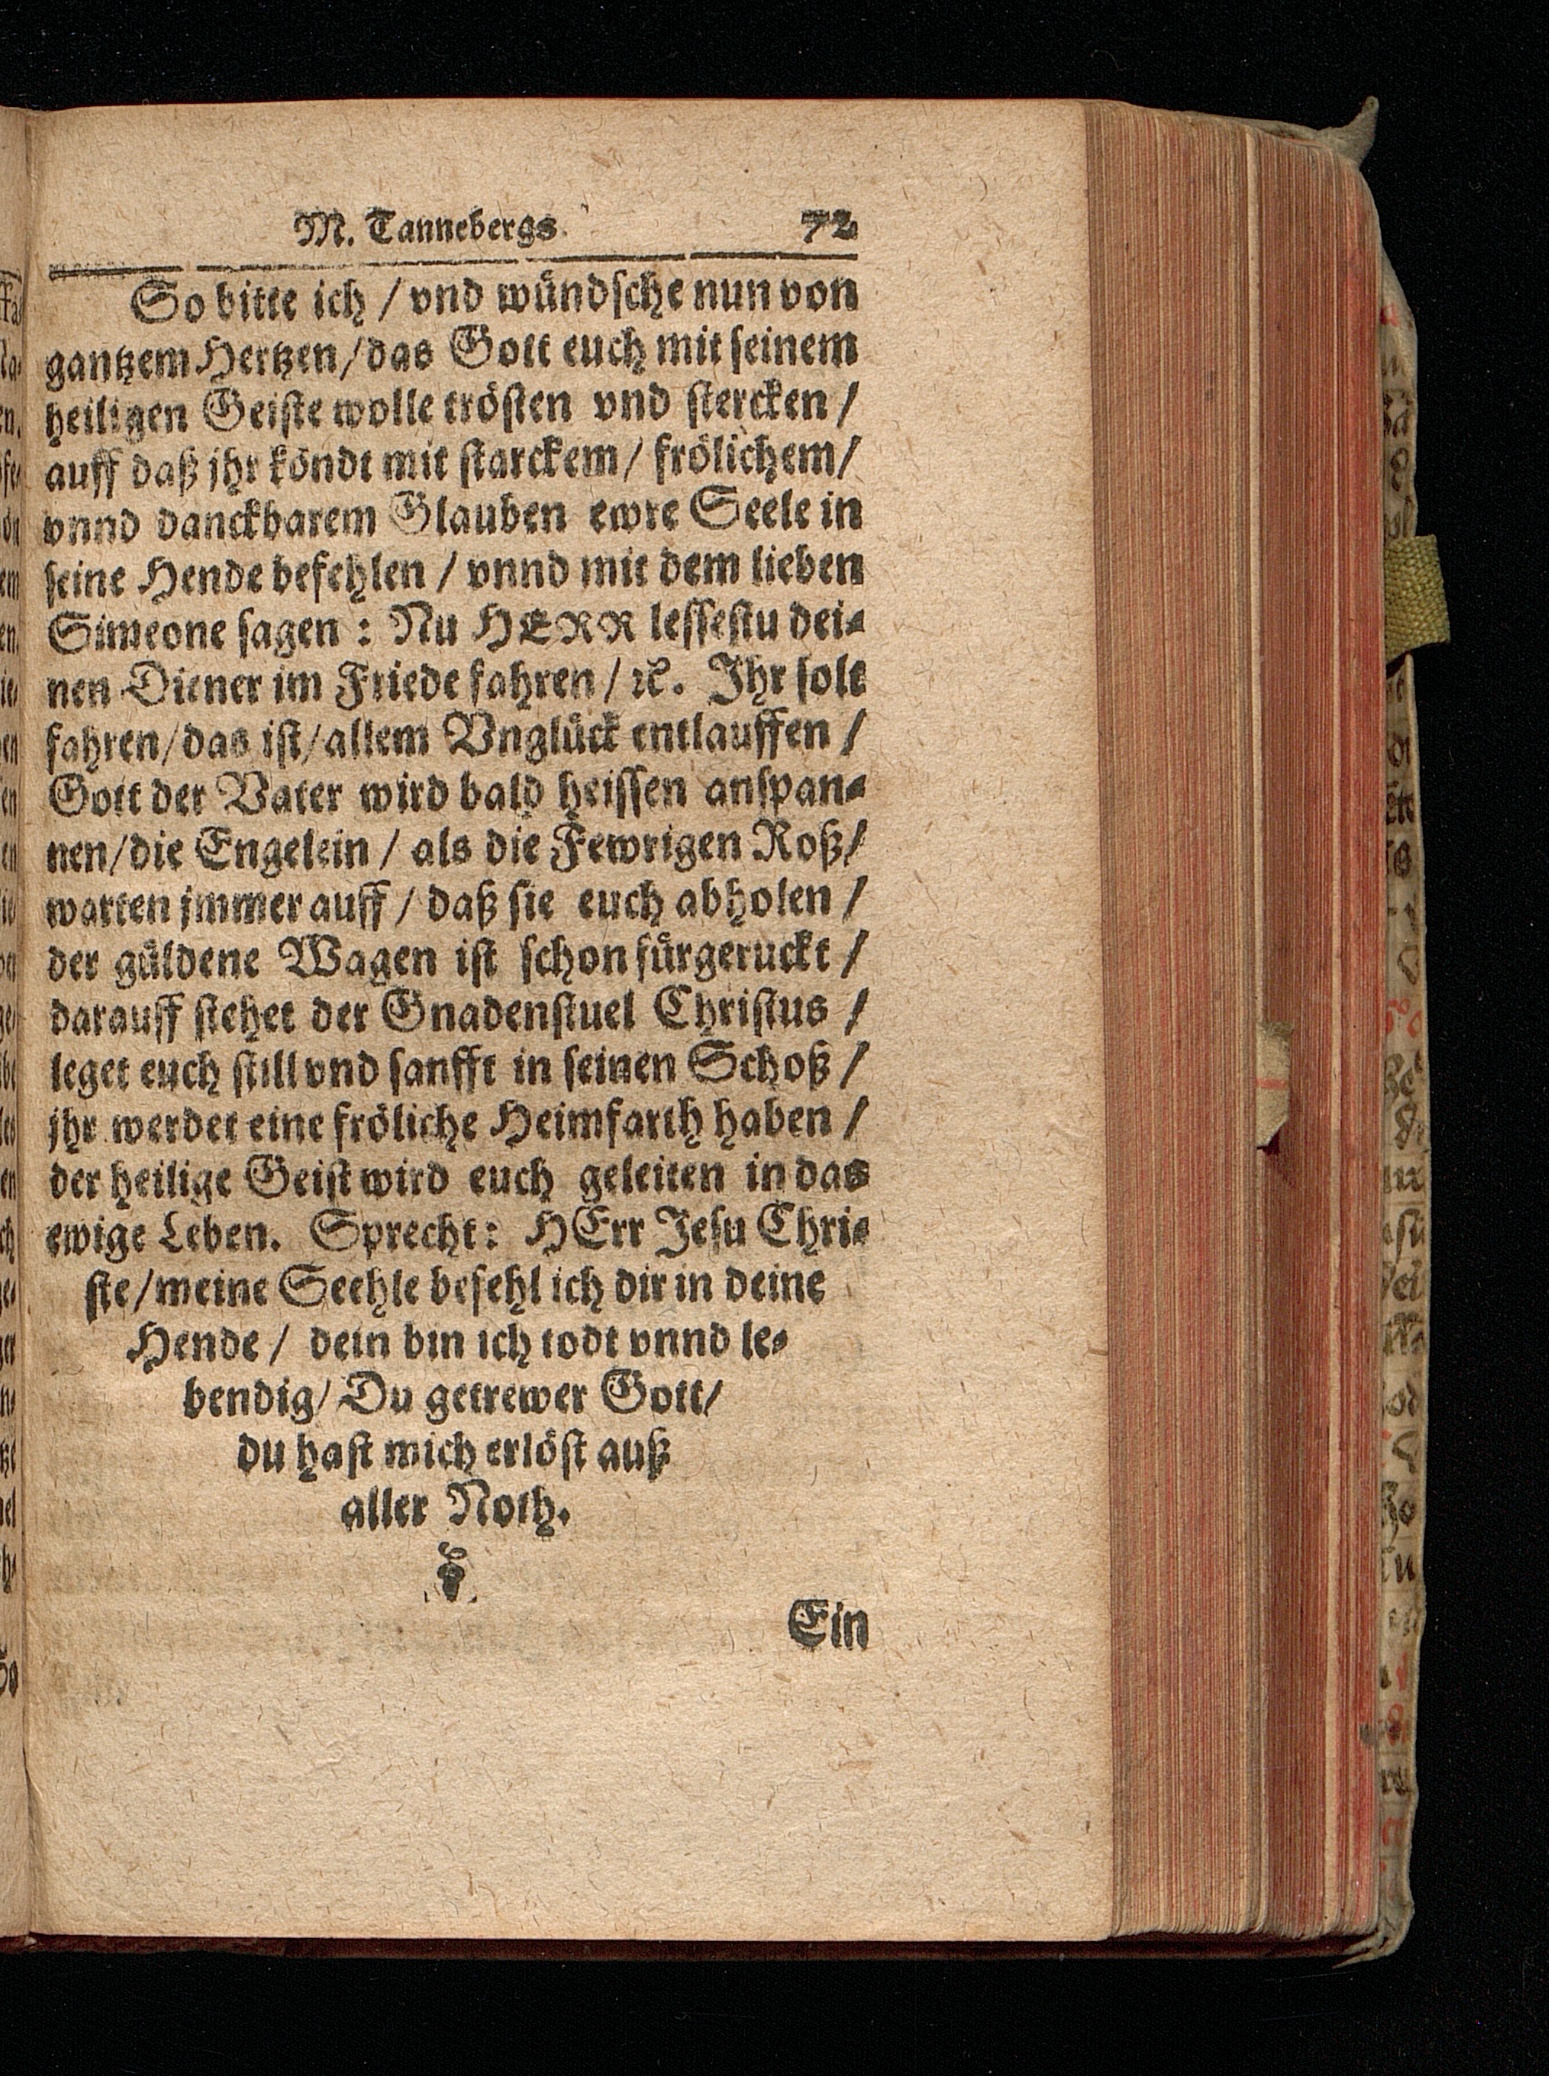 M. Tannebergs. 72
So bitte ich / vnd wündsche nun von
gantzem Hertzen/das Gott euch mit seinem
heiligen Geiste wolle trösten vnd stercken /
auff daß jhr köndt mit starckem/ frölichem/
vnnd danckbarem Glauben ewre Seele in
seine Hende befehlen / vnnd mit dem lieben
Simeone sagen : Nu HERR lessestu dei-
nen Diener im Friede fahren / ꝛc. Ihr solt
fahren/das ist/allem Vnglück entlauffen /
Gott der Vater wird bald heissen anspan-
nen/die Engelein / als die Fewrigen Roß/
warten jmmer auff / daß sie euch abholen /
der güldene Wagen ist schon fürgeruckt /
darauff stehet der Gnadenstuel Christus /
leget euch still vnd sanfft in seinen Schoß /
jhr werdet eine fröliche Heimfarth haben /
der heilige Geist wird euch geleiten in das
ewige Leben. Sprecht: HErr Jesu Chri-
ste/meine Seehle befehl ich dir in deine
Hende / dein bin ich todt vnnd le-
bendig/ Du getrewer Gott/
du hast mich erlöst auß
aller Noth.
Ein